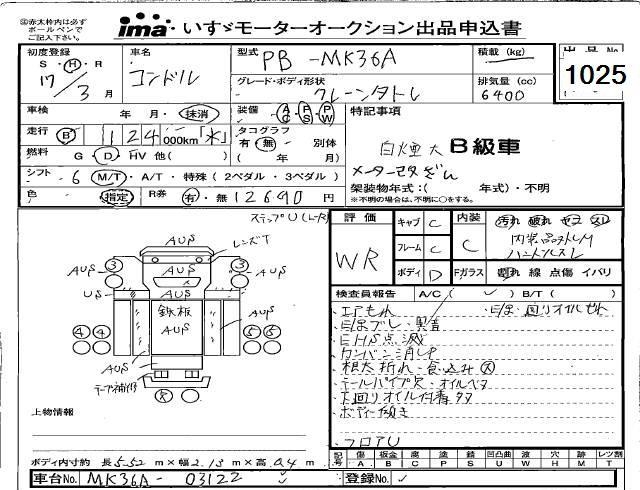 ㊟赤太枠内は必ず
ボールペンで
ご記入下さい。
ima いすゞモーターオークション出品申込書
初度登録 車名 型式 PB-MK36A 積載 (kg) 出品No.
S・H・R コンドル グレード・ボディ形状 排気量 (cc) 1025
17/3月 クレーンタトレ 6400
車検 年 月・抹消 装備 AC PS PW 特記事項
走行 B 124 000km「水」 タコグラフ 有・無 別体 白煙大 B級車
燃料 G・D・HV 他( ) ( 年 月) メーター改ざん
シフト 6 M/T・A/T・特殊 (2ペダル・3ペダル) 架装物年式:( 年式)・不明
色 指定 R券 有・無 12690円 ※不明の場合は、不明に○をする。
ステップU(L-R)
評価 キャブ C 内装 汚れ 破れ ヤコ スレ
WR フレーム C C 内装品欠LM
ハンドルスレ
ボディ D Fガラス 割れ 線 点傷 イバリ
AUS レンズT
③ AUS AUS ③ AUS
US 鉄板 AUS
④④ AUS ⑤⑤
AUS
テープ補修
検査員報告 A/C( ✓ ) B/T( )
・エアもれ ・E/g・回りオイルもれ
・E/gブレ・異音
・EHS点滅
・カンバン消し
・根太折れ・色込み 大
・テールパイプ欠・オイルベタ
・下回りオイル付着多々
・ボディー傾き
・フロアU
上物情報
記号 傷 A 板金 B 腐 C 塗 P 錆 S 凹凸曲 U 波 W 穴 H 跡 M レンツ割 T
ボディ内寸約 長 5.52 m×幅 2.13 m×高 0.4 m
車台No. MK36A-03122 登録No.